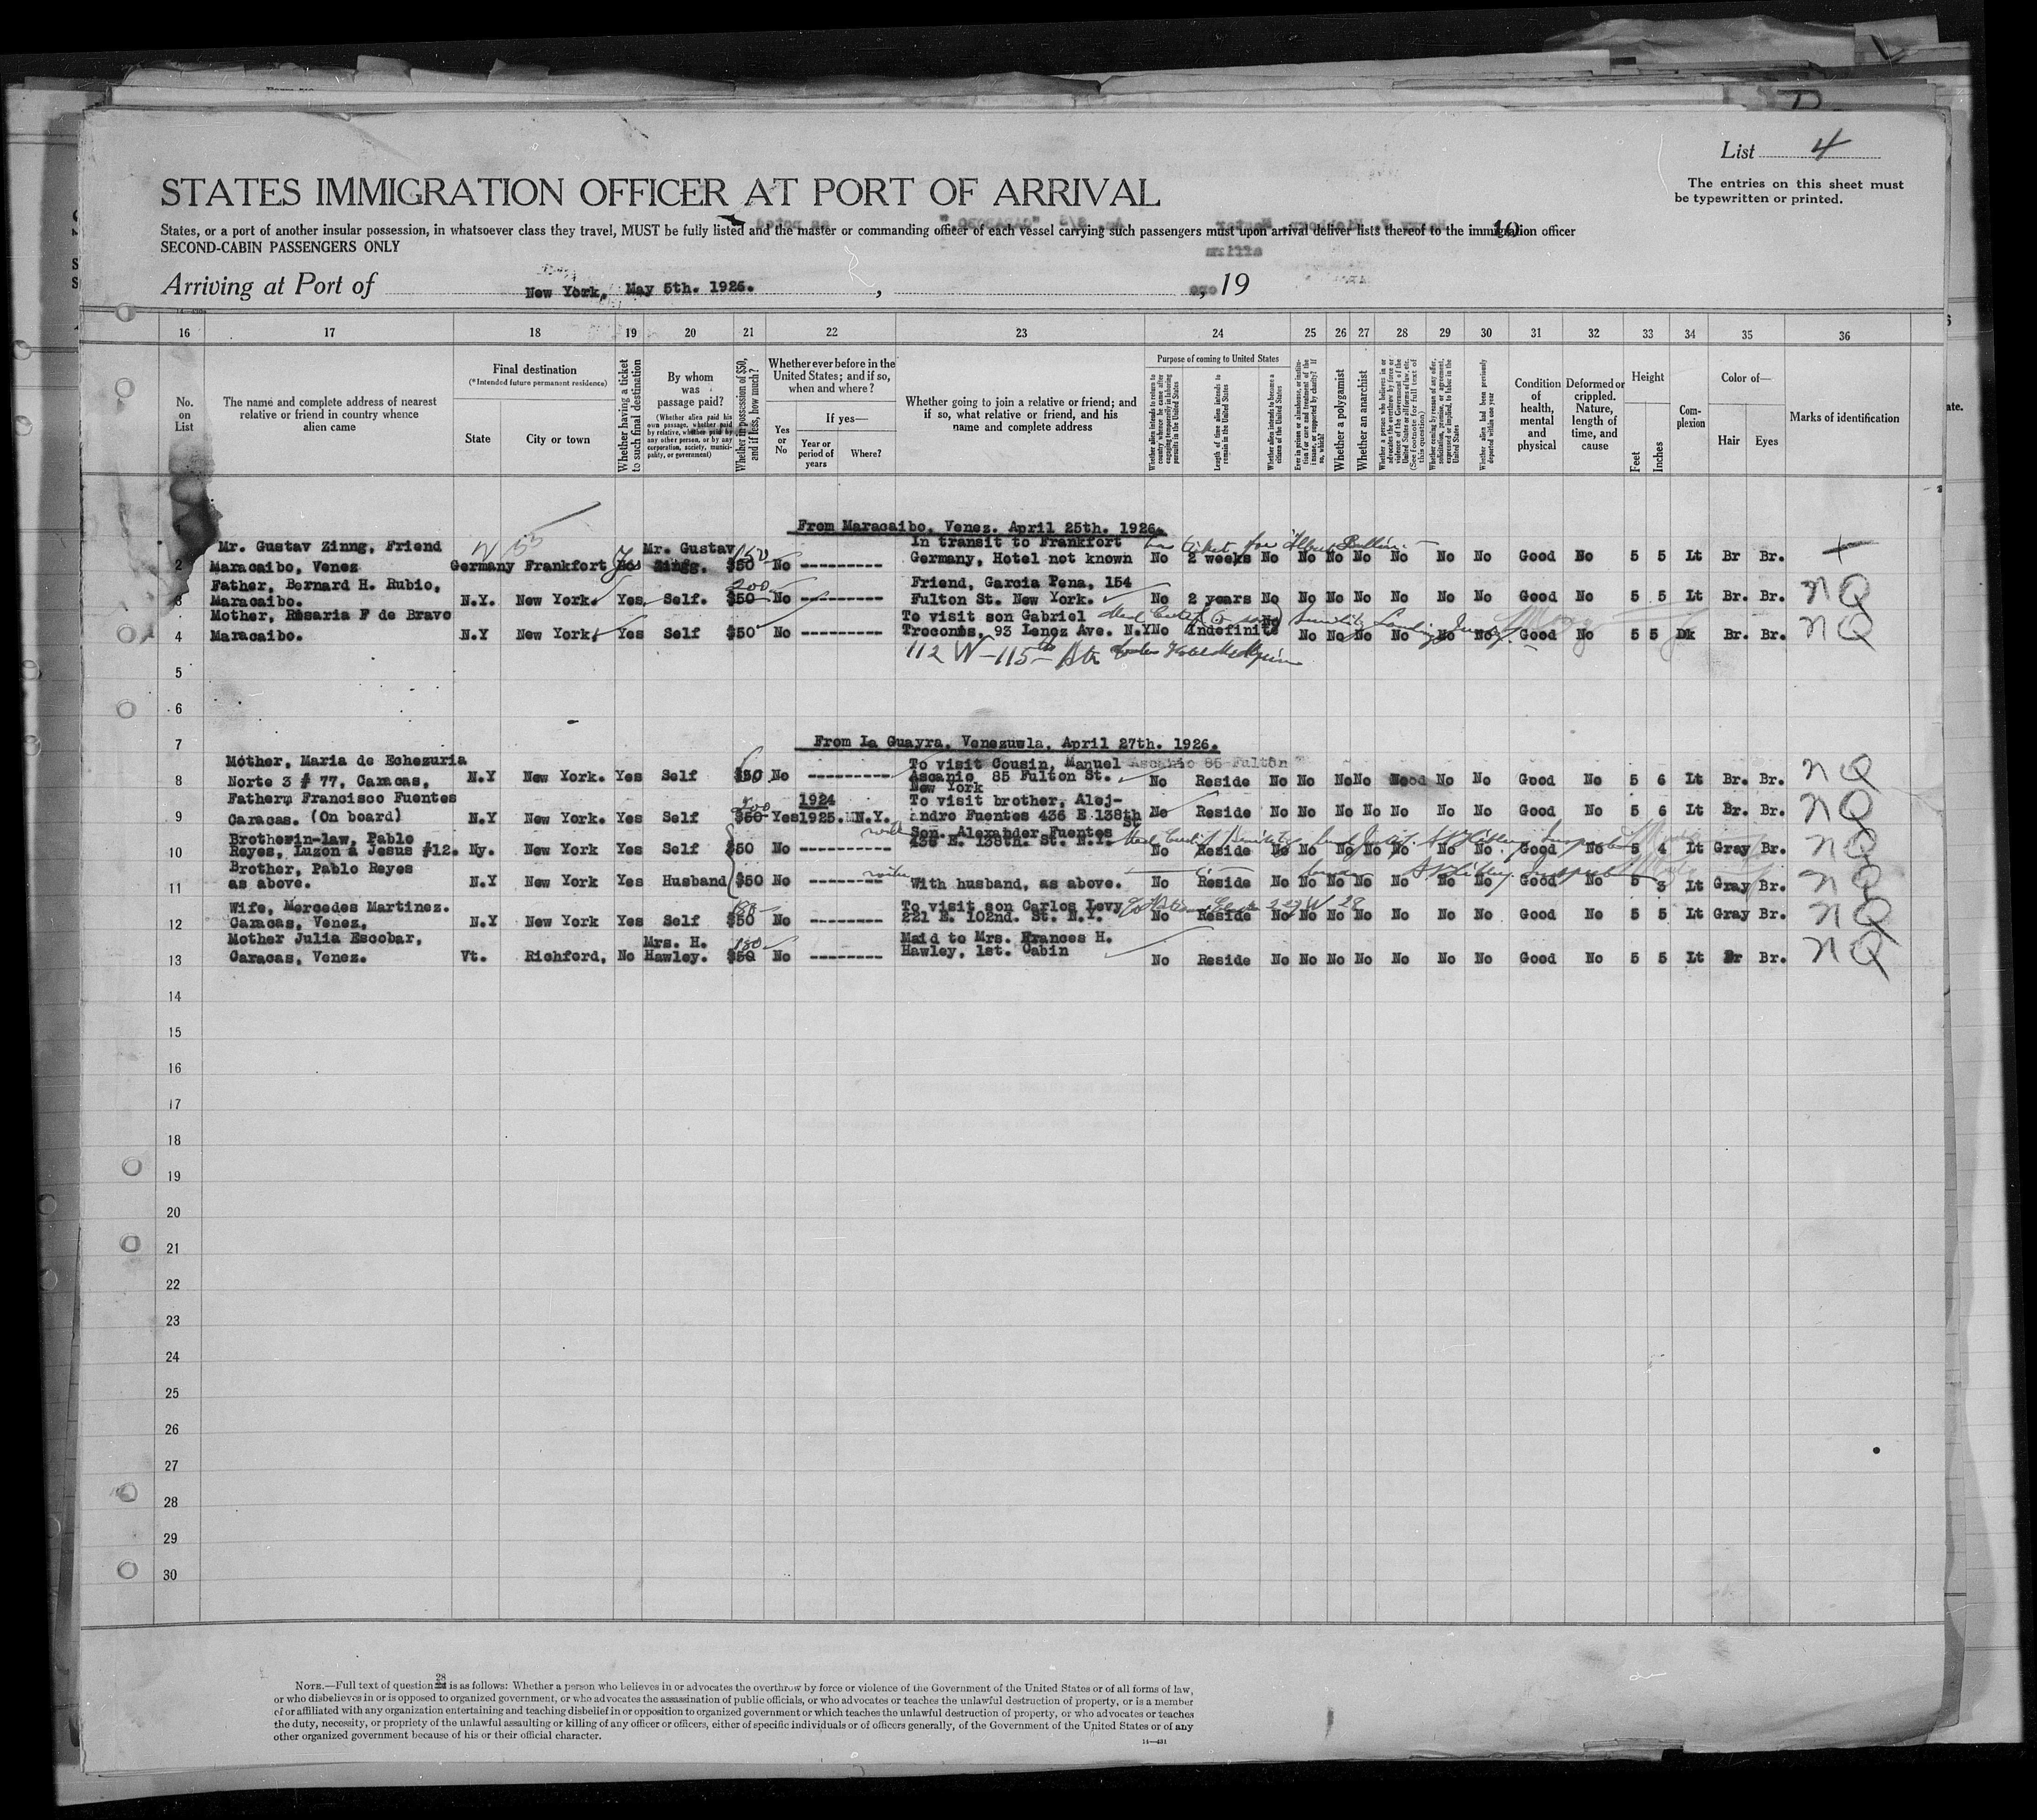 List 4
The entries on this sheet must
be typewritten or printed.
STATES IMMIGRATION OFFICER AT PORT OF ARRIVAL
States, or a port of another insular possession, in whatsoever class they travel, MUST be fully listed and the master or commanding officer of each vessel carrying such passengers must upon arrival deliver lists thereof to the immigration officer
SECOND-CABIN PASSENGERS ONLY
Arriving at Port of New York, May 5th. 1926. , , 19
16 17 18 19 20 21 22 23 24 25 26 27 28 29 30 31 32 33 34 35 36
No. on List
The name and complete address of nearest relative or friend in country whence alien came
Final destination
(*Intended future permanent residence)
State
City or town
Whether having a ticket to such final destination
By whom was passage paid?
(Whether alien paid his own passage, whether paid by relative, whether paid by any other person, or by any corporation, society, municipality, or government)
Whether in possession of $50, and if less, how much?
Whether ever before in the United States; and if so, when and where?
Yes or No
If yes—
Year or period of years
Where?
Whether going to join a relative or friend; and if so, what relative or friend, and his name and complete address
Purpose of coming to United States
Whether alien intends to return to country whence he came after engaging temporarily in laboring pursuits in the United States
Length of time alien intends to remain in the United States
Whether alien intends to become a citizen of the United States
Ever in prison or almshouse, or institution for care and treatment of the insane, or supported by charity? If so, which?
Whether a polygamist
Whether an anarchist
Whether a person who believes in or advocates the overthrow by force or violence of the Government of the United States or all forms of law, etc. (See footnote for full text of this question.)
Whether coming by reason of any offer, solicitation, promise, or agreement, expressed or implied, to labor in the United States
Whether alien had been previously deported within one year
Condition of health, mental and physical
Deformed or crippled. Nature, length of time, and cause
Height
Feet
Inches
Complexion
Color of—
Hair
Eyes
Marks of identification
From Maracaibo, Venez. April 25th. 1926.
Mr. Gustav Zinng, Friend Mr. Gustav 150 In transit to Frankfort
2 Maracaibo, Venez Germany Frankfort Yes Zingg. $50 No --------- Germany, Hotel not known No 2 weeks No No No No No No No Good No 5 5 Lt Br Br.
Father, Bernard H. Rubio, 200 Friend, Garcia Pena, 154
3 Maracaibo. N.Y. New York. Yes Self. $50 No --------- Fulton St. New York. No 2 years No No No No No No No Good No 5 5 Lt Br. Br. NQ
Mother, Rosaria F de Bravo To visit son Gabriel
4 Maracaibo. N.Y New York. Yes Self $50 No --------- Troconis, 93 Lenox Ave. N.Y No Indefinite No No No No No No No Good No 5 5 Dk Br. Br. NQ
112 W - 115th Str
5
6
7 From La Guayra, Venezuela, April 27th. 1926.
Mother, Maria de Echezuria To visit Cousin, Manuel Ascanio 85 Fulton
8 Norte 3 # 77, Caracas, N.Y New York. Yes Self $50 No --------- Ascanio 85 Fulton St. No Reside No No No No No No Good No 5 6 Lt Br. Br. NQ
New York
Father, Francisco Fuentes 1924 To visit brother, Alej-
9 Caracas. (On board) N.Y New York. Yes Self $50 Yes 1925. N.Y. andro Fuentes 436 E 138th St No Reside No No No No No No No Good No 5 6 Lt Br. Br. NQ
Brotherin-law, Pablo Son. Alexander Fuentes
10 Reyes, Luzon a Jesus #12. Ny. New York Yes Self $50 No --------- 436 E. 138th. St. N.Y. No Reside No No No No No No No Good No 5 4 Lt Gray Br. NQ
Brother, Pablo Reyes
11 as above. N.Y New York Yes Husband $50 No -------- With husband, as above. No Reside No No No No No No No Good No 5 3 Lt Gray Br. NQ
Wife, Mercedes Martinez. To visit son Carlos Levy
12 Caracas, Venez, N.Y New York Yes Self $50 No -------- 221 E. 102nd. St. N.Y. No Reside No No No No No No No Good No 5 5 Lt Gray Br. NQ
Mother Julia Escobar, Mrs. H. 180 Maid to Mrs. Frances H.
13 Caracas, Venez. Vt. Richford, No Hawley. $50 No -------- Hawley, 1st. Cabin No Reside No No No No No No No Good No 5 5 Lt Br Br. NQ
14
15
16
17
18
19
20
21
22
23
24
25
26
27
28
29
30
NOTE.—Full text of question 28 is as follows: Whether a person who believes in or advocates the overthrow by force or violence of the Government of the United States or of all forms of law,
or who disbelieves in or is opposed to organized government, or who advocates the assassination of public officials, or who advocates or teaches the unlawful destruction of property, or is a member
of or affiliated with any organization entertaining and teaching disbelief in or opposition to organized government or which teaches the unlawful destruction of property, or who advocates or teaches
the duty, necessity, or propriety of the unlawful assaulting or killing of any officer or officers, either of specific individuals or of officers generally, of the Government of the United States or of any
other organized government because of his or their official character.
14—431